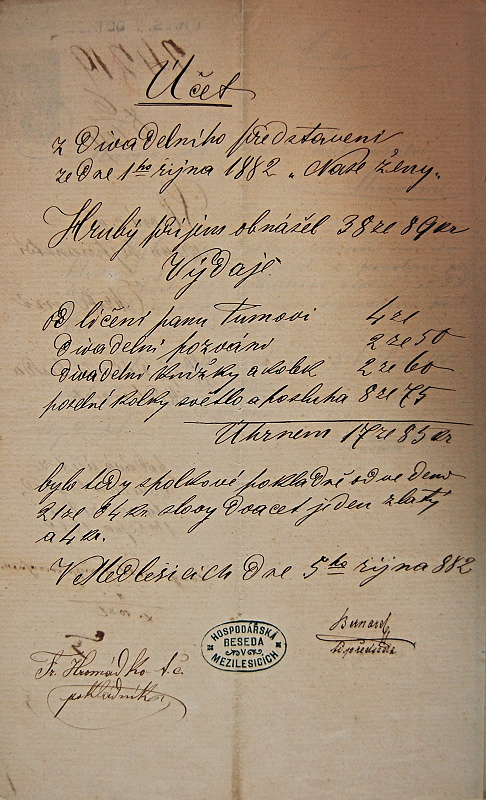 Účet
z Divadelního představení
ze dne 1ho října 1882 „Naše ženy„
Hrubý příjem obnášel 38 ze 89 kr
Výdaje
od líčení panu Tumovi 4 ze
Divadelní pozvání 2 ze 50
Divadelní knížky a kolek 2 ze 60
kolky světlo a posluha 8 ze 75
Úhrnem 17 ze 85 kr
bylo tedy spolkové pokladně odvedeno
21 ze 04 kr. slovy dvacet jeden zlatý
a 4 kr.
dne 5ho října 882
HOSPODÁŘSKÁ
BESEDA
V
MEZILESICÍCH
Fr. Hromádko t.č.
pokladník